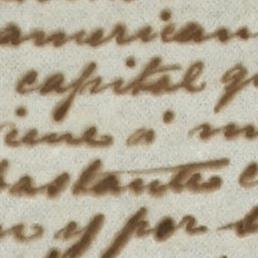 american
capital q
iene a m
bastante c
n y por s